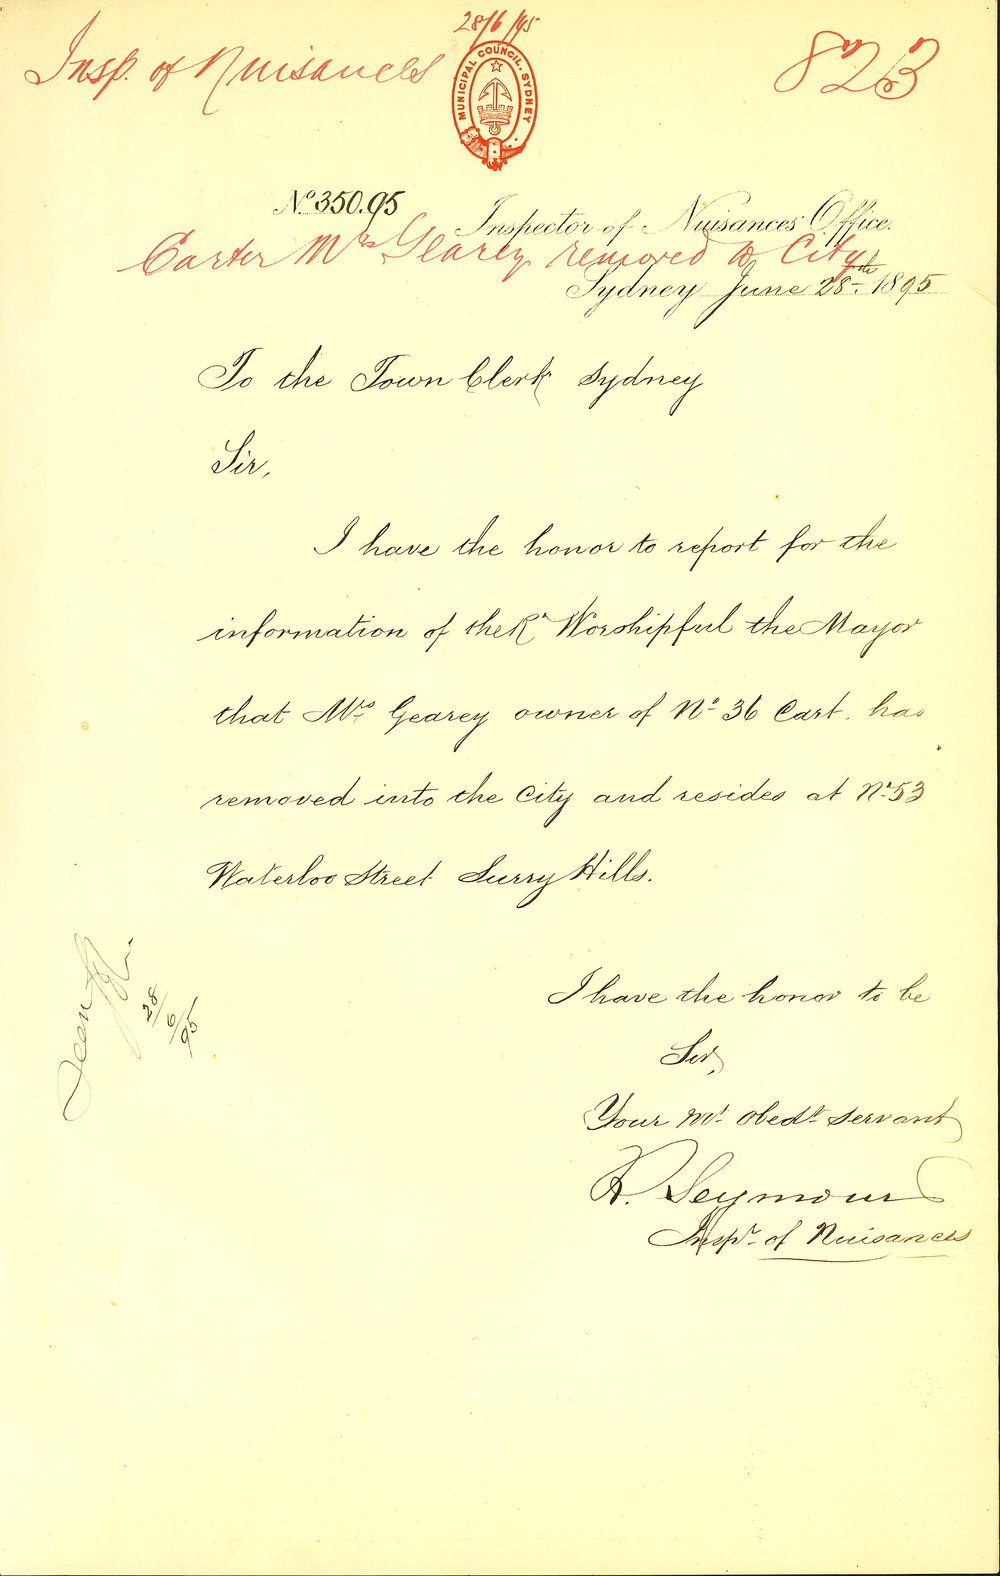 28/6/95
Insp. of Nuisances
823
MUNICIPAL COUNCIL. SYDNEY
No. 350.95
Inspector of Nuisances Office.
Carter Mrs Gearey removed to City
Sydney June 28th 1895
To the Town Clerk Sydney
Sir,
I have the honor to report for the
information of the Rt Worshipful the Mayor
that Mrs Gearey owner of No 36 Cart. has
removed into the City and resides at No 53
Waterloo Street Surry Hills.
Seen
28/6/95
I have the honor to be
Sir,
Your Mt. Obedt. Servant
R. Seymour
Inspr. of Nuisances